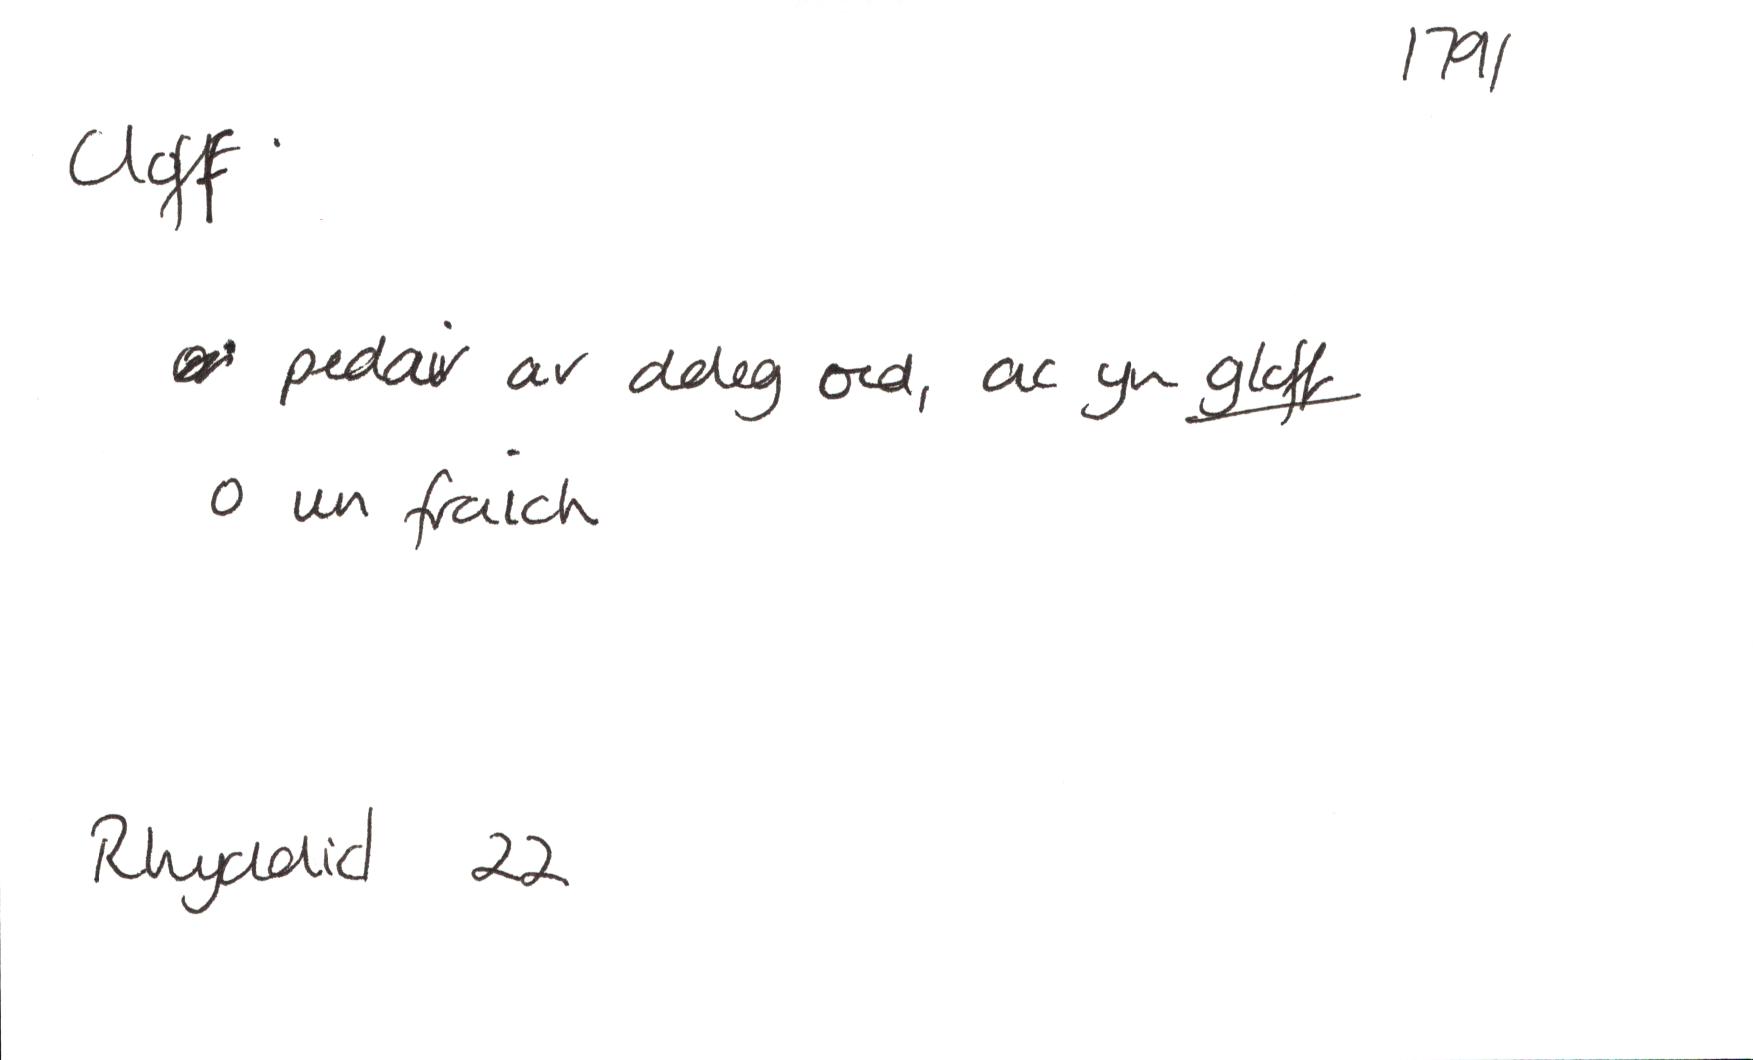 1791
Cloff.
pedair ar ddeg oed, ac yn gloff
o un fraich
Rhyddid 22